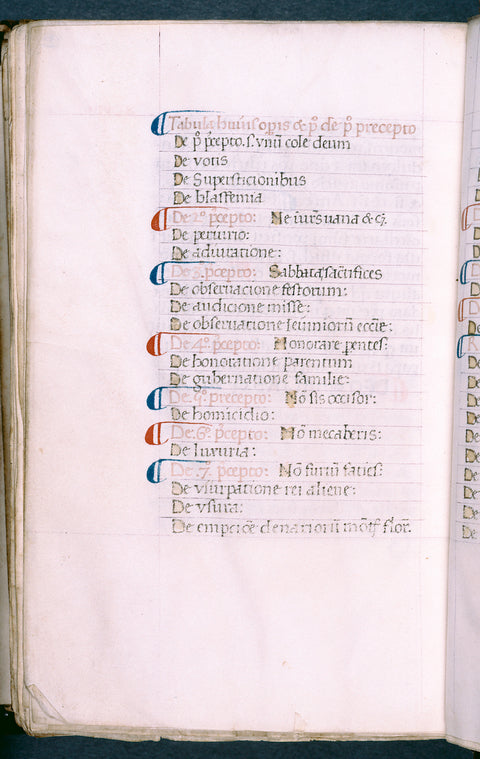 Tabula huius opis & p̊ de p̊ precepto
De p̊ p̄cepto. s. vnū cole deum
De votis
De Supersticionibus
De blasfemia
De 2º. p̄cepto: Ne iures uana & cͥ.
De periurio:
De adiuratione:
De 3. p̄cepto: Sabbata sāctifices
De obseruacione festorum:
De audicione misse:
De obseruatione ieiuniorū eccīe:
De 4º. p̄cepto: Honorare pentes:
De honoratione parentum
De gubernatione familie:
De. 5º. precepto: Nō sis occisor:
De homicidio:
De. 6º. p̄cepto: Nō mecaberis:
De luxuria:
De .7. p̄cepto: Nō furtū facies:
De vsurpatione rei aliene:
De vsura:
De empciōe denariorū mōt flor.